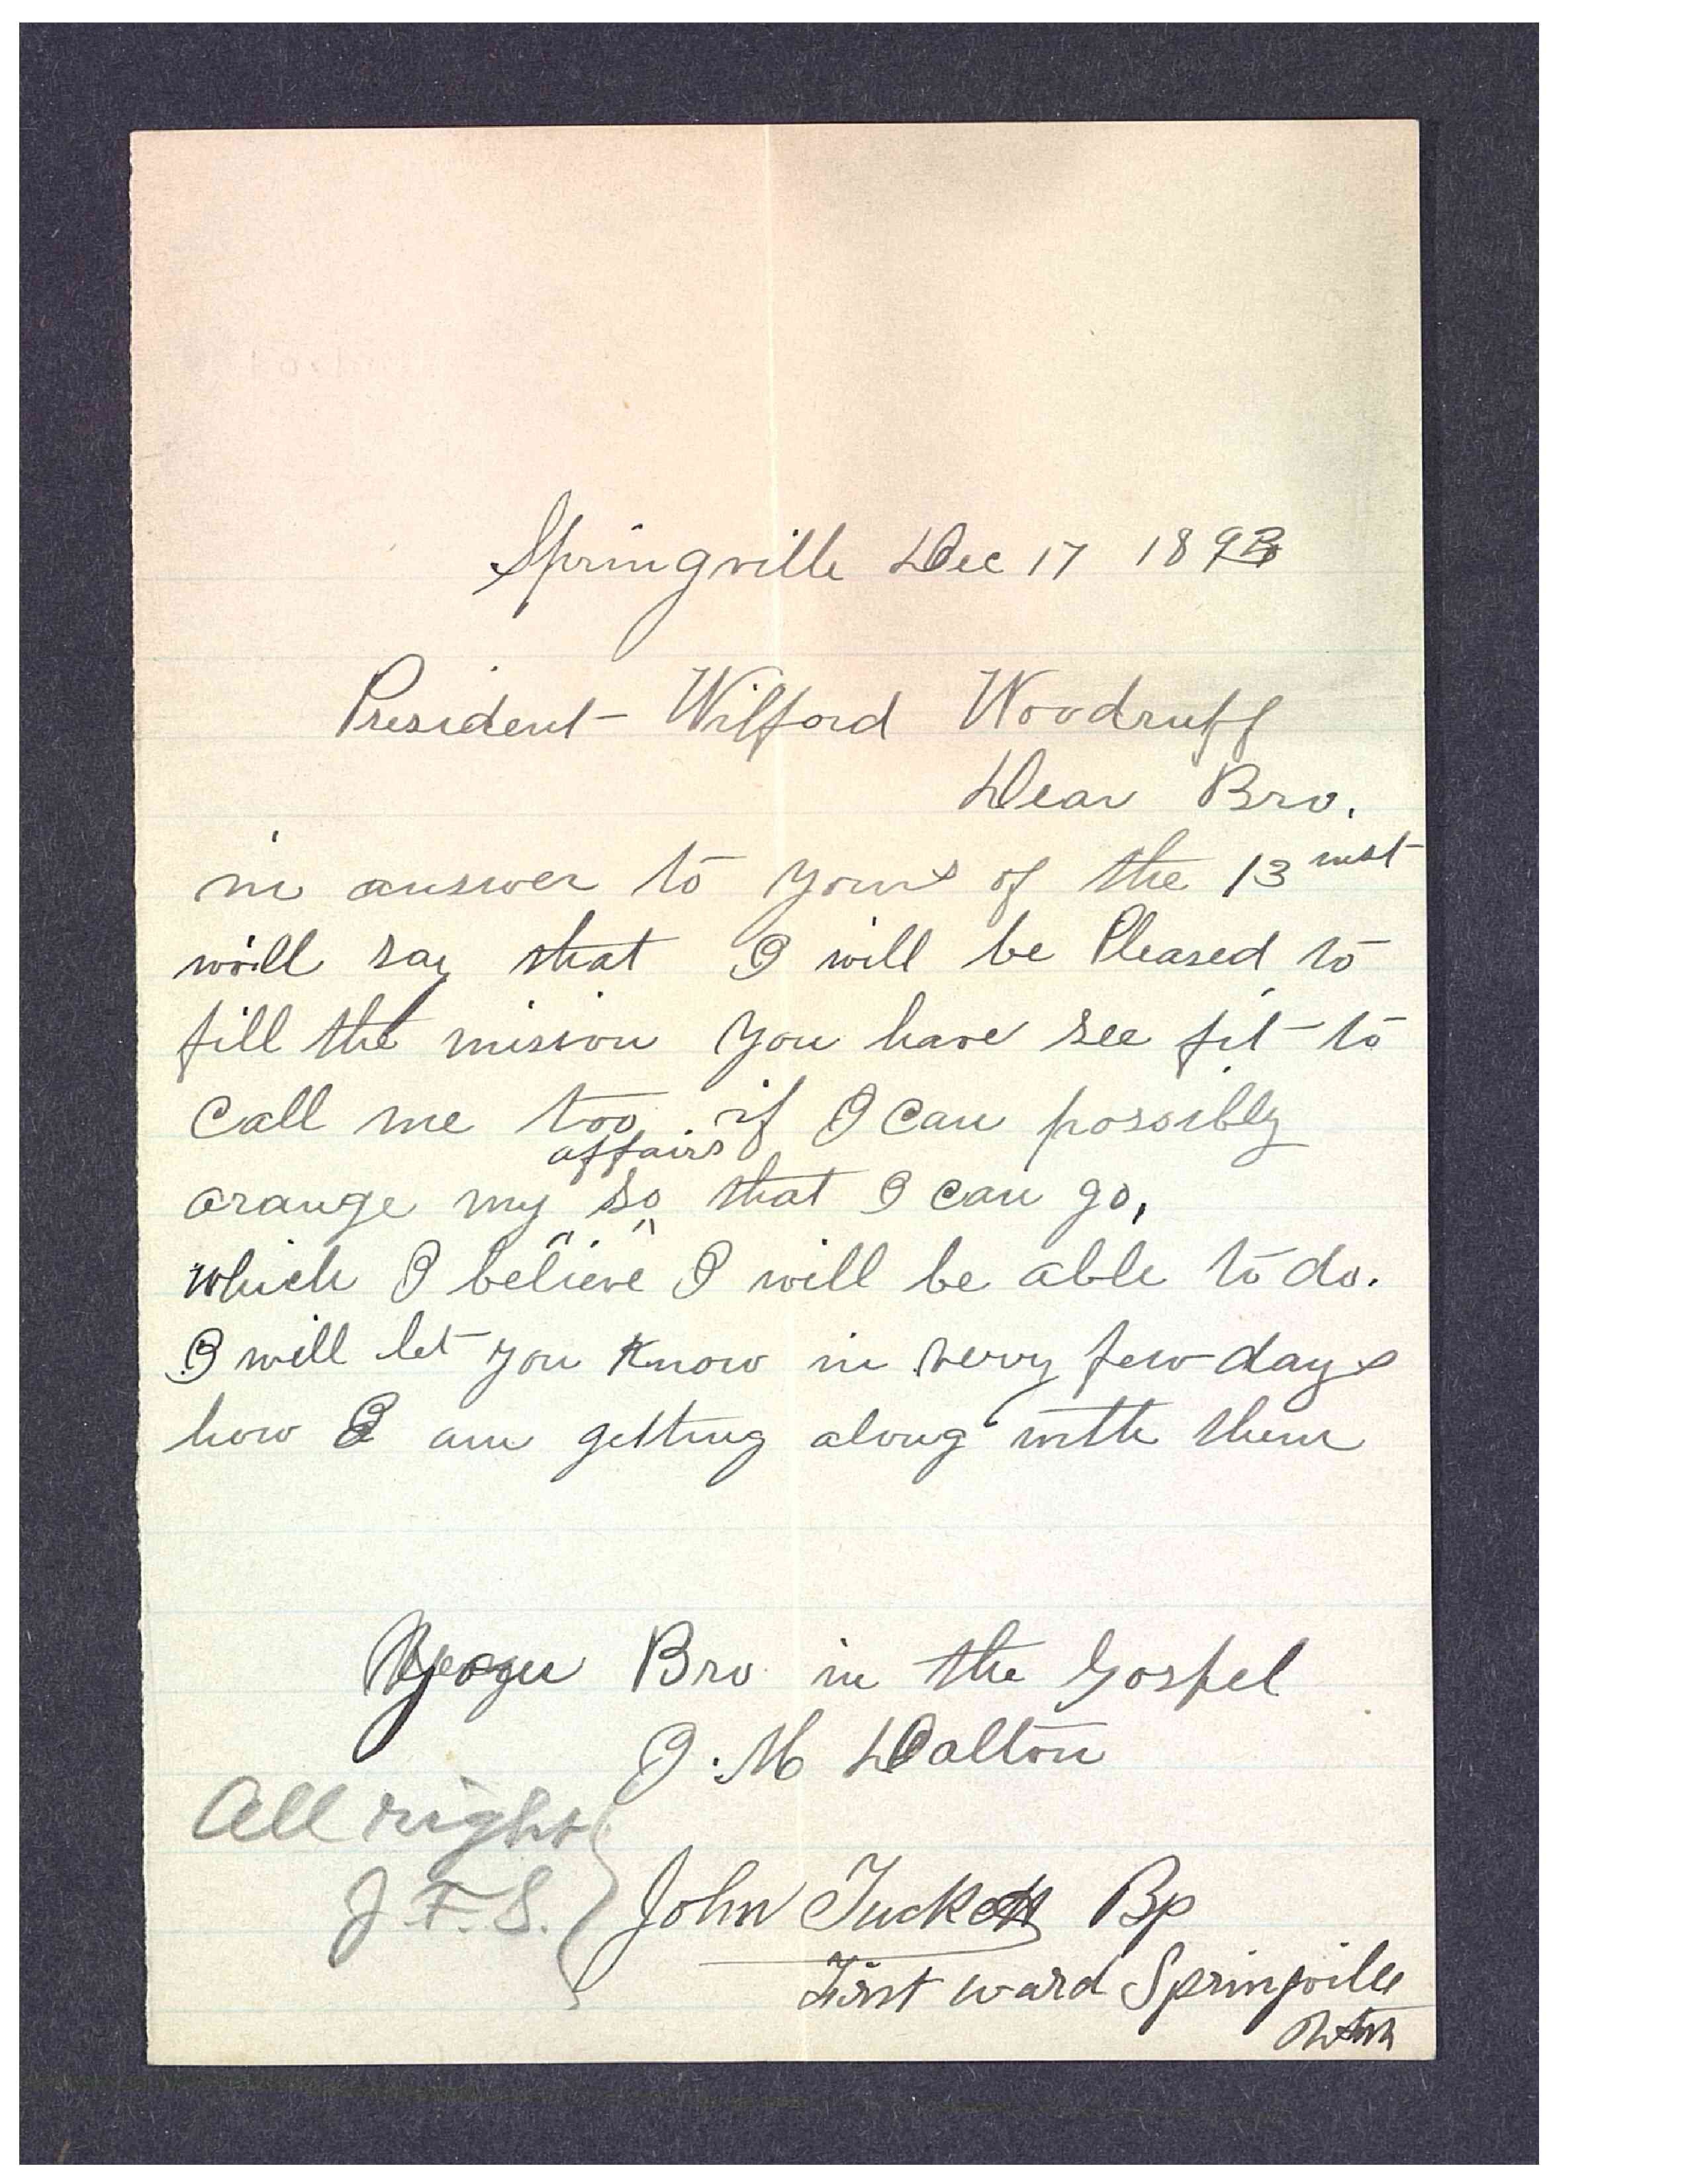 Springville Dec 17 189
President Wilford Woodruff
Dear Bro.
in answer to yours of the 13 inst
will say that I will be Pleased to
fill the mision you have see fit to
Call me too if I can possibly
affairs
arange my so that I can go,
which I believe I will be able to do.
I will let you Know in very few days
how I am getting along with them
Your Bro in the Gospel
J. M Dalton
All right
J. F. S.
John Tuckett Bp
First ward Springville
Utah